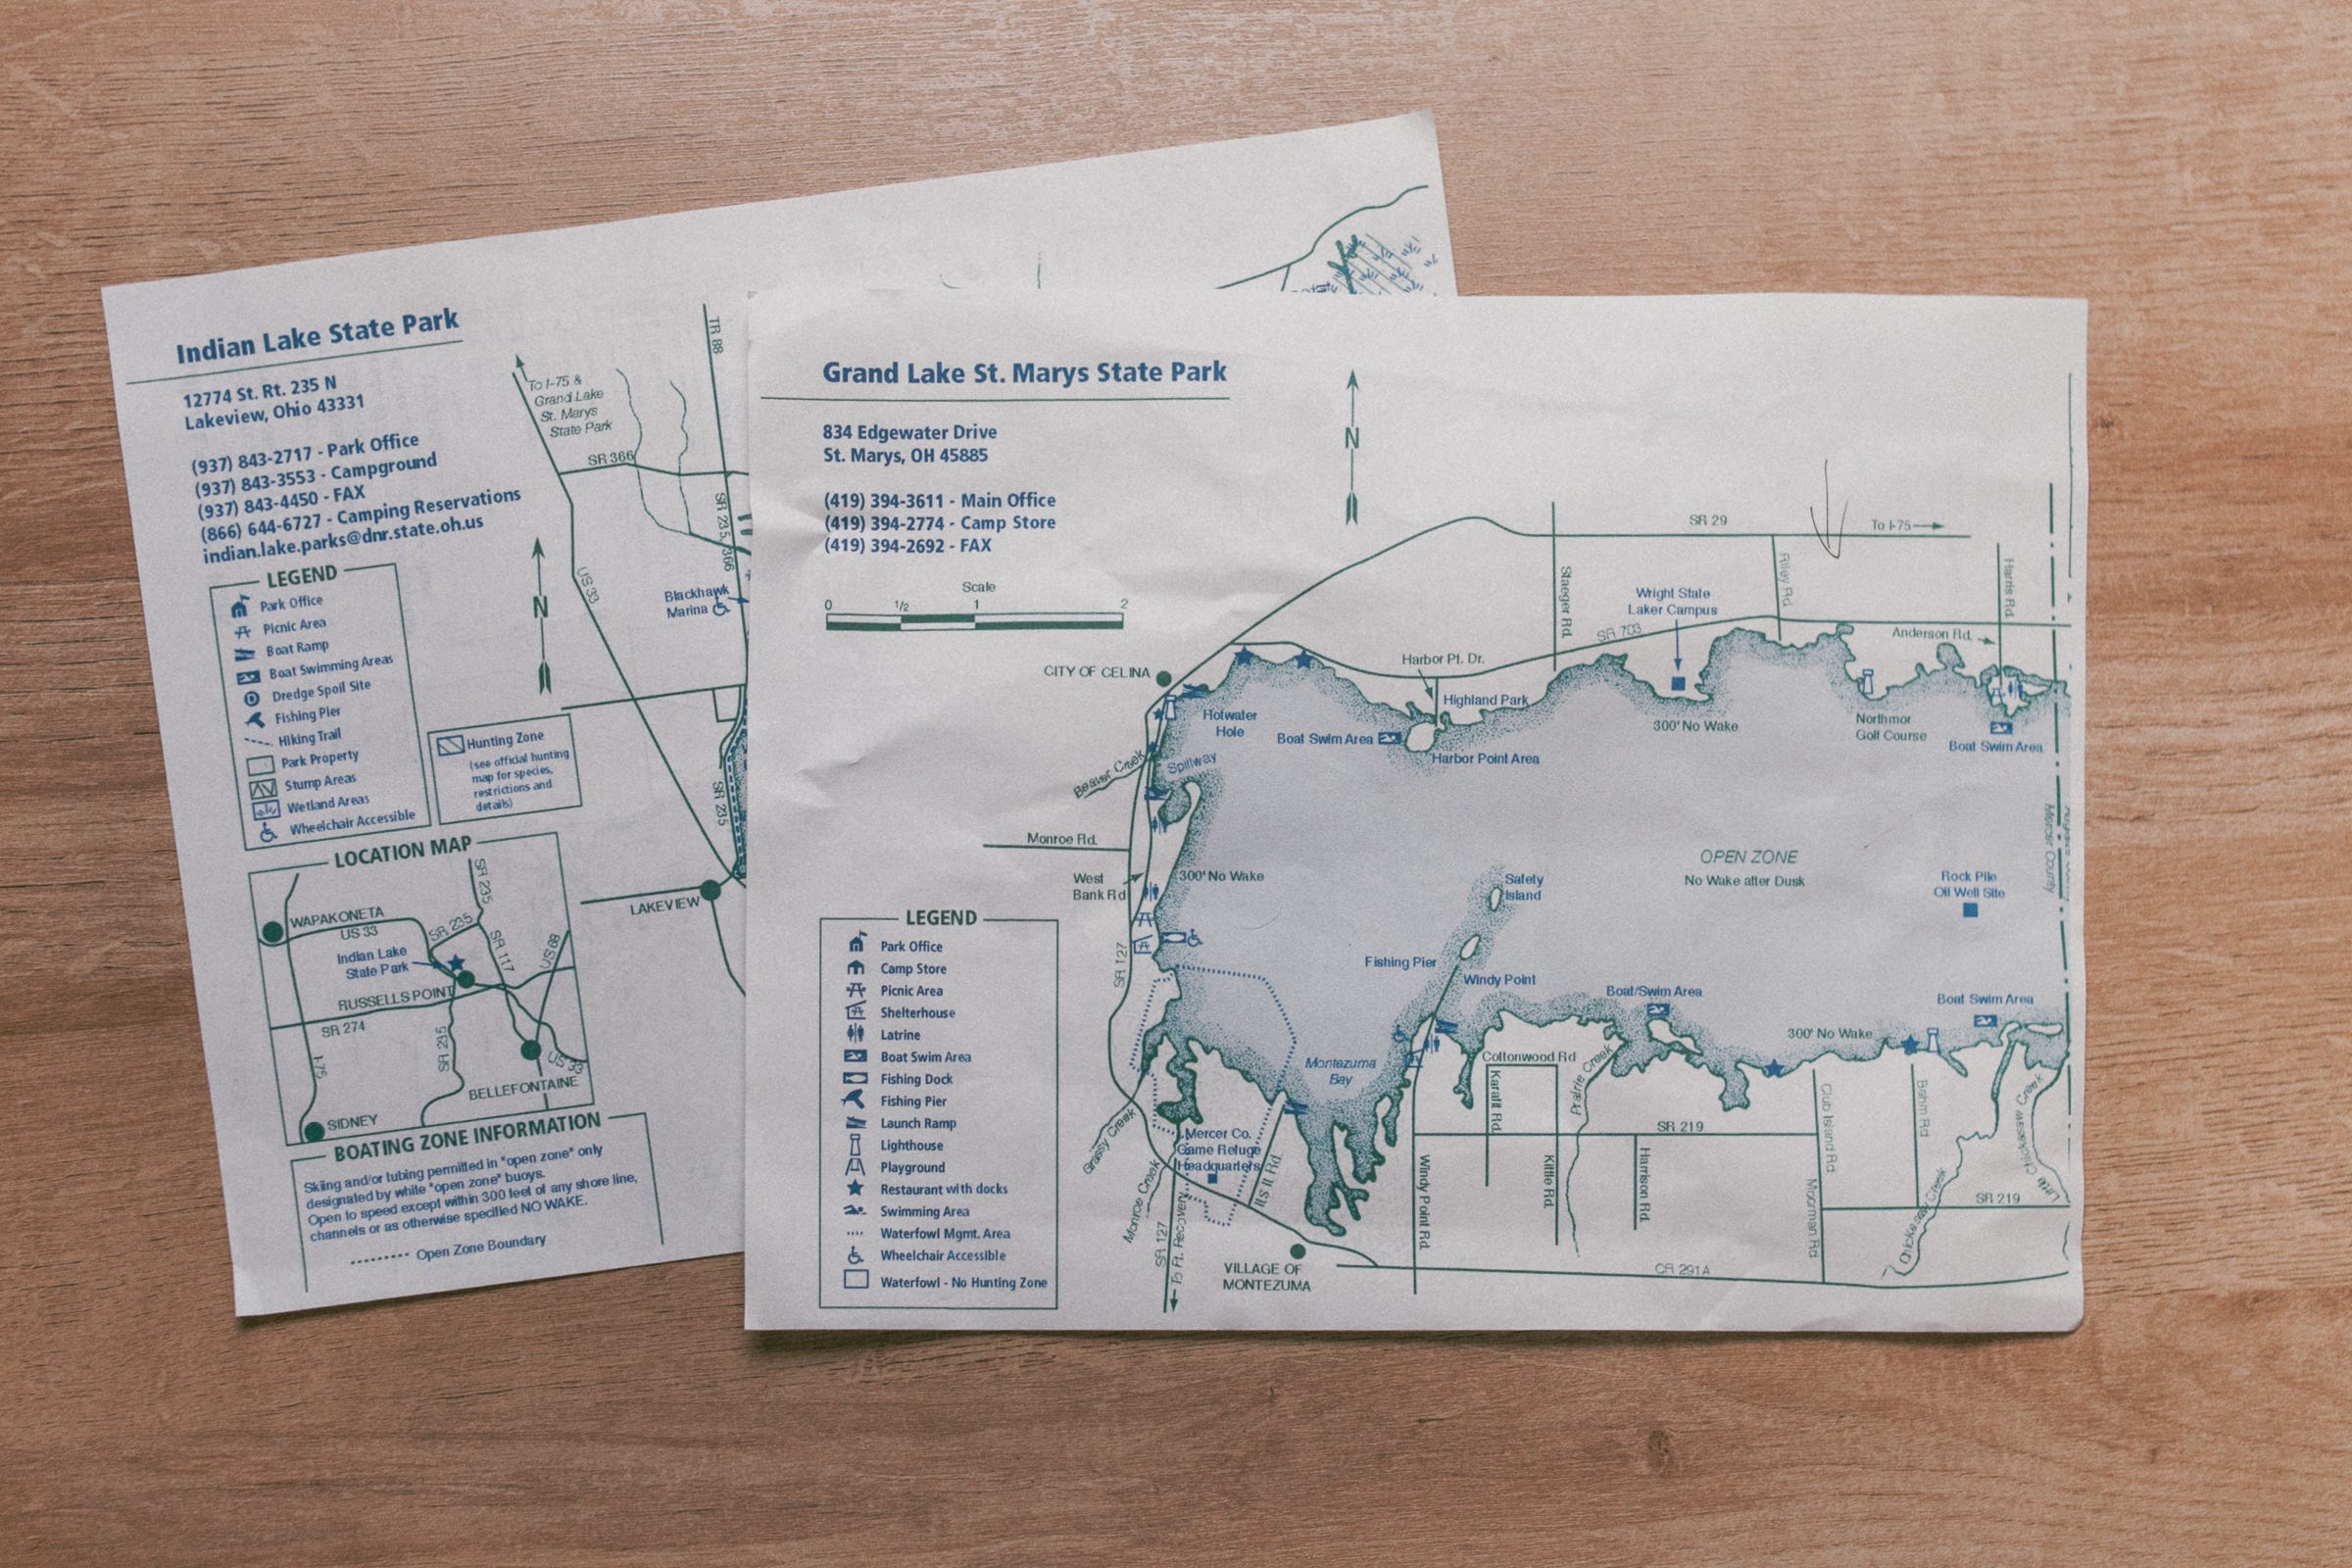 Indian Lake State Park
12774 St. Rt. 235 N
Lakeview, Ohio 43331
(937) 843-2717 - Park Office
(937) 843-3553 - Campground
(937) 843-4450 - FAX
(866) 644-6727 - Camping Reservations
indian.lake.parks@dnr.state.oh.us
LEGEND
Park Office
Picnic Area
Boat Ramp
Boat Swimming Areas
Dredge Spoil Site
Fishing Pier
Hiking Trail
Park Property
Stump Areas
Wetland Areas
Wheelchair Accessible
Hunting Zone
(see official hunting
map for species,
restrictions and
details)
To I-75 &
Grand Lake
St. Marys
State Park
TR 88
SR 366
SR 235/366
US 33
N
Blackhawk
Marina
SR 235
LAKEVIEW
LOCATION MAP
WAPAKONETA
US 33
SR 235
SR 235
Indian Lake
State Park
SR 117
US 68
RUSSELLS POINT
SR 274
I-75
SR 235
US 33
BELLEFONTAINE
SIDNEY
BOATING ZONE INFORMATION
Skiing and/or tubing permitted in "open zone" only
designated by white "open zone" buoys.
Open to speed except within 300 feet of any shore line,
channels or as otherwise specified NO WAKE.
Open Zone Boundary
Grand Lake St. Marys State Park
834 Edgewater Drive
St. Marys, OH 45885
(419) 394-3611 - Main Office
(419) 394-2774 - Camp Store
(419) 394-2692 - FAX
Scale
0 1/2 1 2
N
SR 29
To I-75
Staeger Rd.
Riley Rd
Harris Rd.
Wright State
Laker Campus
SR 703
Anderson Rd.
Harbor Pt. Dr.
CITY OF CELINA
Highland Park
Hotwater
Hole
Boat Swim Area
300' No Wake
Northmor
Golf Course
Boat Swim Area
Harbor Point Area
Beaver Creek
Spillway
Mercer County
Monroe Rd.
West
Bank Rd
300' No Wake
OPEN ZONE
No Wake after Dusk
Safety
Island
Rock Pile
Oil Well Site
SR 127
Fishing Pier
Windy Point
Boat/Swim Area
Boat Swim Area
300' No Wake
Montezuma
Bay
Coltonwood Rd
Karafit Rd.
Prairie Creek
Club Island Rd.
Behm Rd
Chickasaw Creek
Little Chickasaw Creek
Grassy Creek
Monroe Creek
Mercer Co.
Game Refuge
Headquarters
SR 219
Its It Rd.
Windy Point Rd.
Kittle Rd.
Harrison Rd.
Moorman Rd
SR 219
SR 127
To Ft. Recovery
VILLAGE OF
MONTEZUMA
CR 291A
LEGEND
Park Office
Camp Store
Picnic Area
Shelterhouse
Latrine
Boat Swim Area
Fishing Dock
Fishing Pier
Launch Ramp
Lighthouse
Playground
Restaurant with docks
Swimming Area
Waterfowl Mgmt. Area
Wheelchair Accessible
Waterfowl - No Hunting Zone